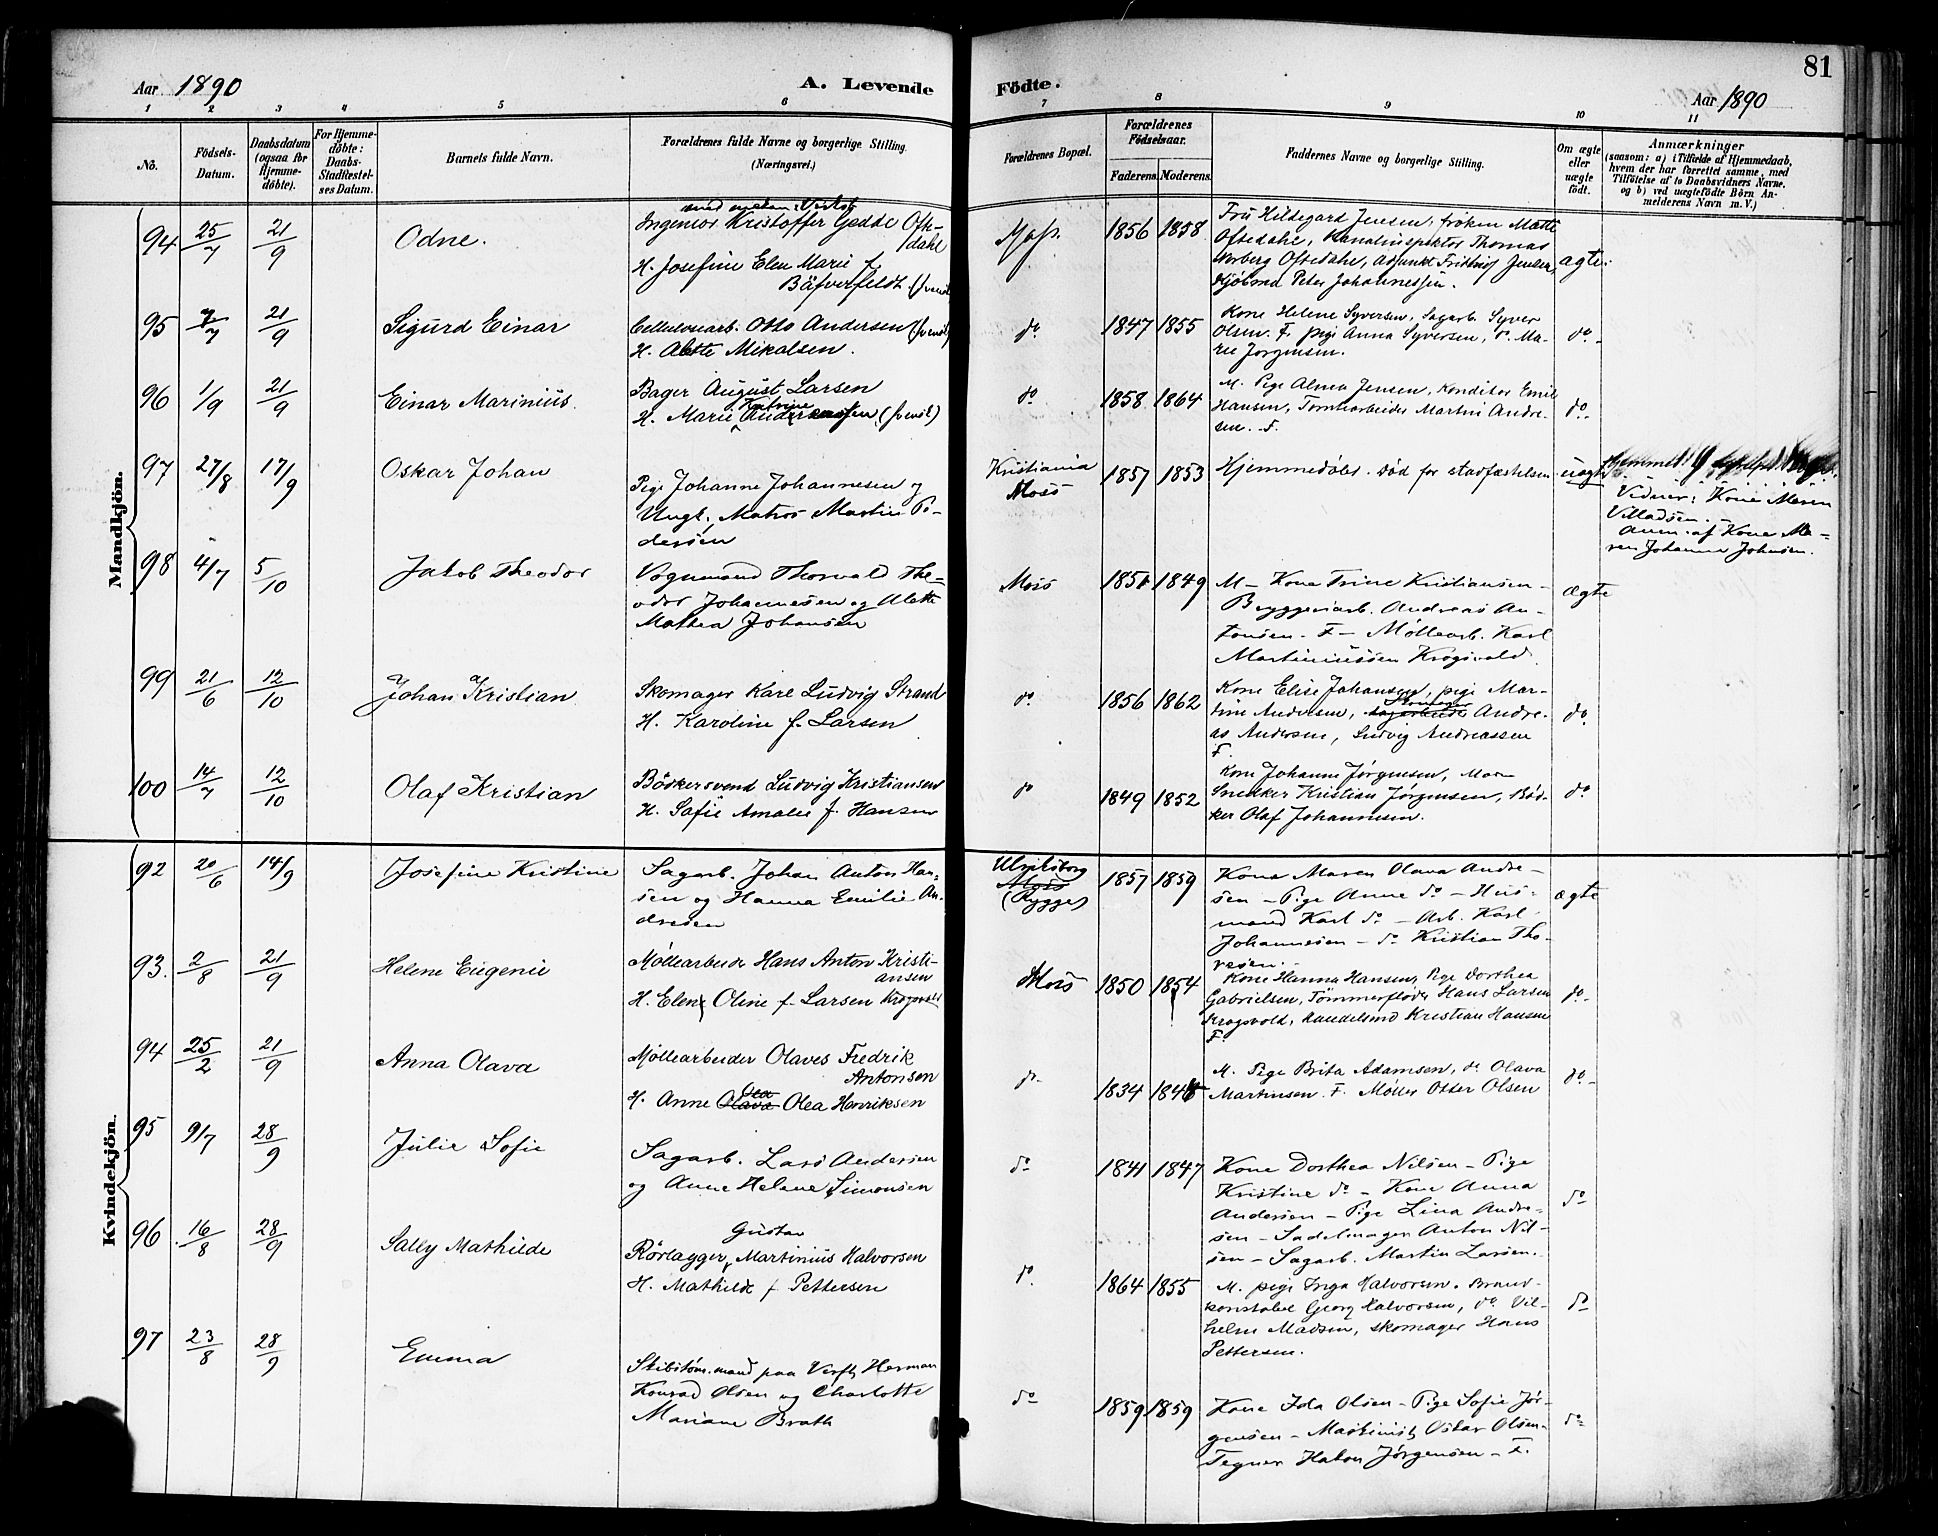 81
Aar 1890
A. Levende Födte.
Aar 1890
1 2 3 4 5 6 7 8 9 10 11
No.
Födsels-Datum.
Daabsdatum (ogsaa for Hjemme-döbte).
For Hjemme-döbte: Daabs-Stadfæstel-ses Datum.
Barnets fulde Navn.
Forældrenes fulde Navne og borgerlige Stilling. (Næringsvei.)
Forældrenes Bopæl.
Forældrenes Födselsaar.
Faderens. Moderens.
Faddernes Navne og borgerlige Stilling.
Om ægte eller uægte födt.
Anmærkninger
(saasom: a) i Tilfælde af Hjemmedaab,
hvem der har forrettet samme, med
Tilföielse af to Daabsvidners Navne.
og b) ved uægtefödte Börn An-
melderens Navn m. V.)
Mandkjön.
94 25/7 21/9 Odne.
Ingeniör Kristoffer Gedde Ofte-
dahl
H. Josefine Elen Marie f.
Bäfverfeldt
Moss. 1856 1858
Fru Hildegard Jensen, fröken Mette
Oftedahl, Kanalinspektör Thomas
Oftedahl, Adjunkt Fridthjof Jensen,
Kjöbmd Peter Johannessen.
ægte.
95 7/7 21/9 Sigurd Einar
Cellulosearb. Otto Andersen
H. Alette Mikalsen.
do. 1847 1855
Kone Helene Syversen, Sagarb. Syver
Olsen. F. pige Anna Syversen, do. Ma-
rie Jörgensen.
do.
96 1/9 21/9 Einar Marinius.
Bager August Larsen
Katrine
H. Marie Andersen
do 1858 1864
M. Pige Alma Jensen, Konditor Emil
Hansen, Tomtearbeider Martin Andre-
sen. F.
do.
97 27/8 17/9 Oskar Johan
Pige Johanne Johannesen og
Ungk. Matros Martin Pe-
dersen
Kristiania
Moss
1857 1853
Hjemmedöbt. död för stadfæstelsen
uægte
Vidner: Kone Maren
Villadsen.
Anm. af Kone Ma-
ren Johanne Johnsen.
98 4/7 5/10 Jakob Theodor
Vognmand Thorvald The-
odor Johannesen og Alette
Mathea Johansen
Moss 1851 1849
M – Kone Trine Kristiansen –
Bryggeriarb. Andreas An-
tonsen – F – Møllearb. Karl
Martiniussen Krogsvold.
ægte
99 21/6 12/10 Johan Kristian
Skomager Karl Ludvig Strand
H. Karoline f. Larsen
do. 1856 1862
Kone Elise Johansen, pige Mar-
tine Andersen, Andre-
as Andersen, Ludvig Andreassen
F.
do.
100 14/7 12/10 Olaf Kristian
Bödkersvend Ludvig Kristiansen
H. Sofie Amalie f. Hansen
do 1849 1852
Kone Johanne Jørgensen,
Snekker Kristian Jørgensen, Böd-
ker Olaf Johannesen.
do.
Kvindekjön.
92 20/6 14/9 Josefine Kristine
Sagarb. Johan Anton Han-
sen og Hanna Emilie An-
dresen
Ulriksborg
Moss
(Rygge)
1857 1859
Kone Maren Olava Andre-
sen – Pige Anne do – Hus-
mand Karl do – Arb. Karl
Johannesen – do Kristian Tho-
resen.
ægte
93. 2/8 21/9 Helene Eugenie
Møllearbeider Hans Anton Kristi-
ansen
H. Elen Oline f. Larsen Krogsvold
Moss 1850 1854
Kone Hanna Hansen, Pige Dorthea
Gabrielsen, Tömmerfløder Hans Larsen
Krogsvold, Handelsmd Kristian Hansen
F.
do.
94 25/2 21/9 Anna Olava
Møllearbeider Olaves Fredrik
Antonsen
Olea
H. Anne Olava Olea Henriksen
do. 1834
M. Pige Brita Adamsen, do. Olava
Martinsen. F. Møller Otter Olsen
do.
95 9/7 28/9 Julie Sofie
Sagarb. Lars Andersen
og Anne Helene Simonsen
do 1841 1847
Kone Dorthea Nilsen – Pige
Kristine do – Kone Anna
Andersen – Pige Lina Andre-
sen – Sadelmager Anton Nil-
sen – Sagarb. Martin Larsen.
do
96 16/8 28/9 Sally Mathilde
Gustav
Rörlægger, Martinius Halvorsen
H. Mathilde f. Pettersen
do. 1864 1855
M. pige Inga Halvorsen. Brand-
konstabel Georg Halvorsen, do. Vil-
helm Madsen, skomager Hans
Pettersen.
do
97 23/8 28/9 Emma
Skibstöm.mand paa Verft, Herman
Konrad Olsen og Charlotte
Mariane Brath
do 1859 1859
Kone Ida Olsen – Pige Sofie Jør-
gensen – Maskinist Oskar Olsen –
Tegner Hakon Jørgensen – F.
do